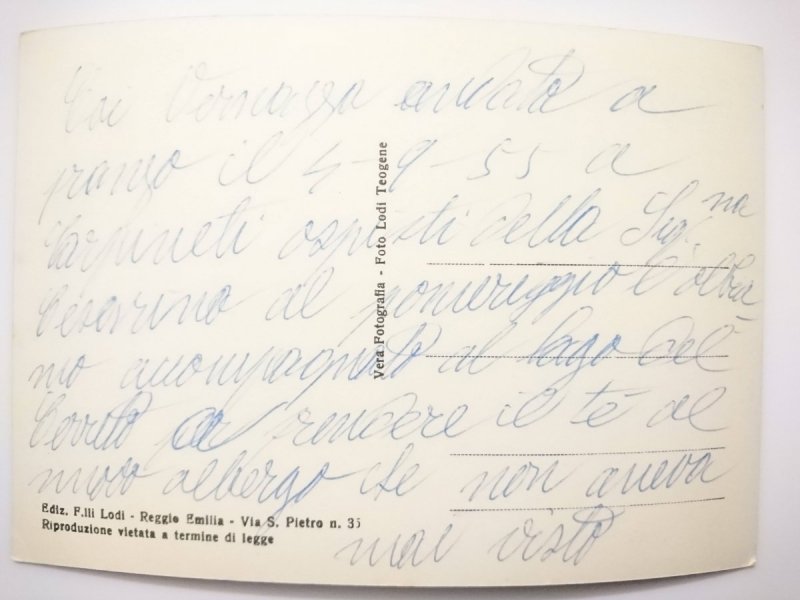 Coi Vernazza andata a
pranzo il 4-9-55 a
Carpineti ospiti della Sig.na
Cesarina al pomereggio l'abbia-
mo accompagnata al lago del
Cerreto a prendere il tè al
nuovo albergo che non aveva
mai visto
Vera Fotografia - Foto Lodi Teogene
Ediz. F.lli Lodi - Reggio Emilia - Via S. Pietro n. 35
Riproduzione vietata a termine di legge